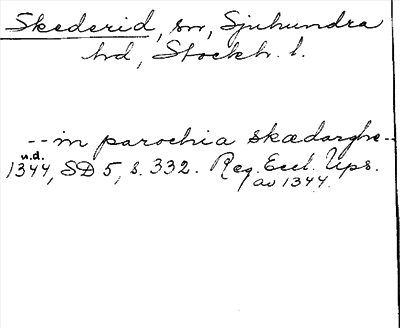 Skederid, sn, Sjuhundra
hd, Stockh. l.
-- in parochia skædarghe --
u.d.
1344, SD 5, s. 332. Reg. Eccl. Ups.
av 1344.